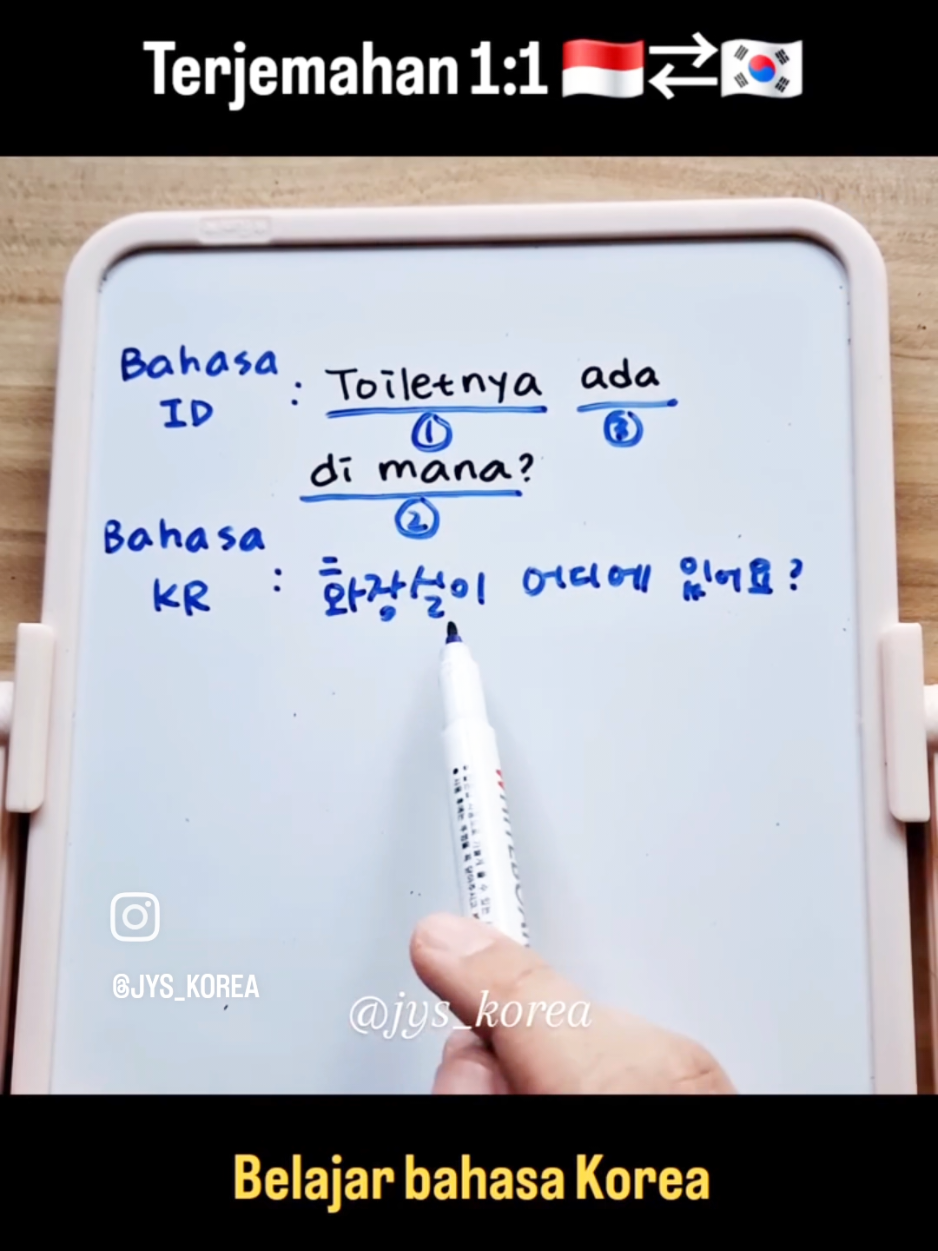 Terjemahan 1:1 🇮🇩⇄🇰🇷
Bahasa ID : Toiletnya ada
① ③
di mana?
②
Bahasa KR : 화장실이 어디에 있어요?
@JYS_KOREA
@jys_korea
Belajar bahasa Korea